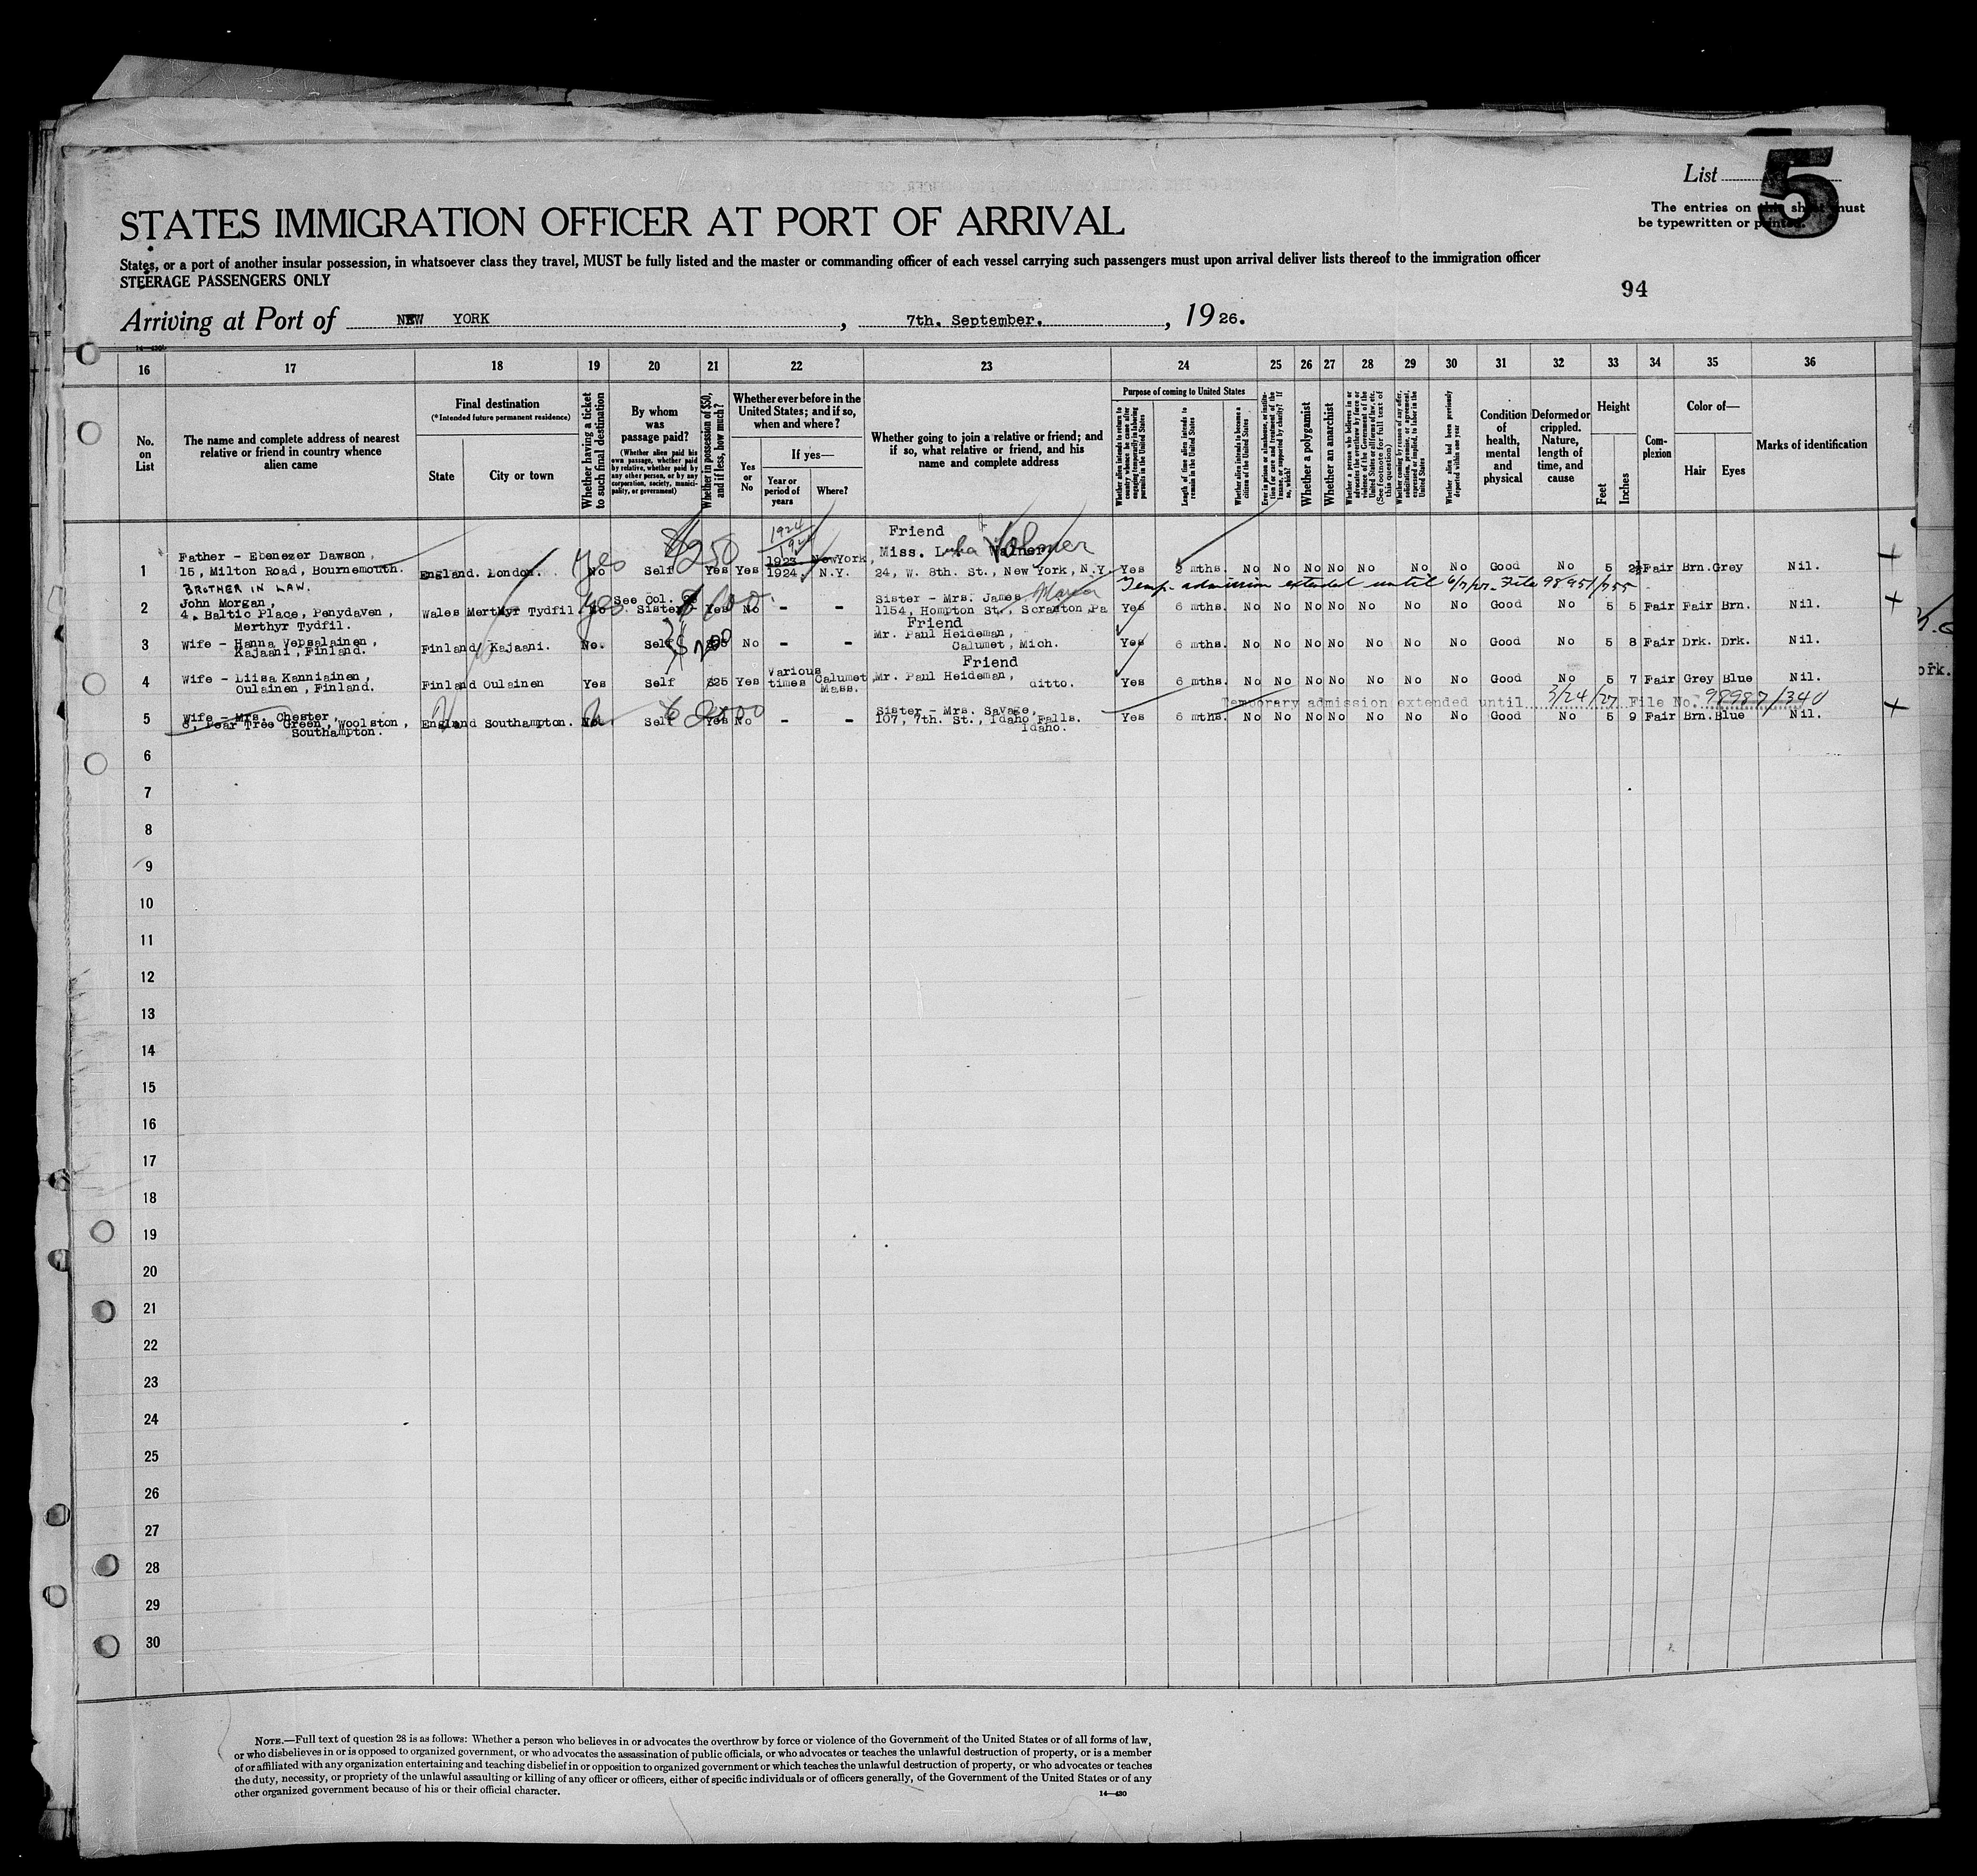 List 5
The entries on this sheet must
be typewritten or printed.
STATES IMMIGRATION OFFICER AT PORT OF ARRIVAL
States, or a port of another insular possession, in whatsoever class they travel, MUST be fully listed and the master or commanding officer of each vessel carrying such passengers must upon arrival deliver lists thereof to the immigration officer
STEERAGE PASSENGERS ONLY
94
Arriving at Port of NEW YORK , 7th. September. , 19 26.
16 17 18 19 20 21 22 23 24 25 26 27 28 29 30 31 32 33 34 35 36
No. on List
The name and complete address of nearest relative or friend in country whence alien came
Final destination
(*Intended future permanent residence)
State
City or town
Whether having a ticket to such final destination
By whom was passage paid?
(Whether alien paid his own passage, whether paid by relative, whether paid by any other person, or by any corporation, society, municipality, or government)
Whether in possession of $50, and if less, how much?
Whether ever before in the United States; and if so, when and where?
Yes or No
If yes—
Year or period of years
Where?
Whether going to join a relative or friend; and if so, what relative or friend, and his name and complete address
Purpose of coming to United States
Whether alien intends to return to country whence he came after engaging temporarily in laboring pursuits in the United States
Length of time alien intends to remain in the United States
Whether alien intends to become a citizen of the United States
Ever in prison or almshouse or institution for care and treatment of the insane, or supported by charity? If so, which?
Whether a polygamist
Whether an anarchist
Whether a person who believes in or advocates the overthrow by force or violence of the Government of the United States or all forms of law, etc. (See footnote for full text of this question)
Whether coming by reason of any offer, solicitation, promise, or agreement, expressed or implied, to labor in the United States
Whether alien had been previously deported within one year
Condition of health, mental and physical
Deformed or crippled. Nature, length of time, and cause
Height
Feet
Inches
Complexion
Color of—
Hair
Eyes
Marks of identification
1 Father - Ebenezer Dawson,
15, Milton Road, Bournemouth. England. London. No Yes Self $250 Yes Yes 1923 1924. New York, N.Y.
1924
Friend
Miss. Volmer
24, W. 8th. St., New York, N.Y. Yes 2 mths. No No No No No No No Good No 5 2½ Fair Brn. Grey Nil.
Temp. admission extended until 6/7/27. File 98951/755
2 BROTHER IN LAW.
John Morgan,
4, Baltic Place, Penydaven,
Merthyr Tydfil. Wales Merthyr Tydfil No Yes See Col. Sister Yes No - -
Sister - Mrs. James
1154, Hompton St., Scranton Pa Yes 6 mths. No No No No No No No Good No 5 5 Fair Fair Brn. Nil.
3 Wife - Hanna Vepsalainen,
Kajaani, Finland. Finland Kajaani. No. Self No - -
Friend
Mr. Paul Heideman,
Calumet, Mich. Yes 6 mths. No No No No No No No Good No 5 8 Fair Drk. Drk. Nil.
4 Wife - Liisa Kanniainen,
Oulainen, Finland. Finland Oulainen Yes Self $25 Yes Various times Calumet, Mass.
Friend
Mr. Paul Heideman,
ditto. Yes 6 mths. No No No No No No No Good No 5 7 Fair Grey Blue Nil.
Temporary admission extended until 3/24/27 File No. 98987/340
5 Wife - Mrs. Chester,
6, Pear Tree Green, Woolston,
Southampton. England Southampton. No. Self Yes No - -
Sister - Mrs. Savage,
107, 7th. St., Idaho Falls.
Idaho. Yes 6 mths. No No No No No No No Good No 5 9 Fair Brn. Blue Nil.
6
7
8
9
10
11
12
13
14
15
16
17
18
19
20
21
22
23
24
25
26
27
28
29
30
NOTE.—Full text of question 28 is as follows: Whether a person who believes in or advocates the overthrow by force or violence of the Government of the United States or of all forms of law,
or who disbelieves in or is opposed to organized government, or who advocates the assassination of public officials, or who advocates or teaches the unlawful destruction of property, or is a member
of or affiliated with any organization entertaining and teaching disbelief in or opposition to organized government or which teaches the unlawful destruction of property, or who advocates or teaches
the duty, necessity, or propriety of the unlawful assaulting or killing of any officer or officers, either of specific individuals or of officers generally, of the Government of the United States or of any
other organized government because of his or their official character.
14—430